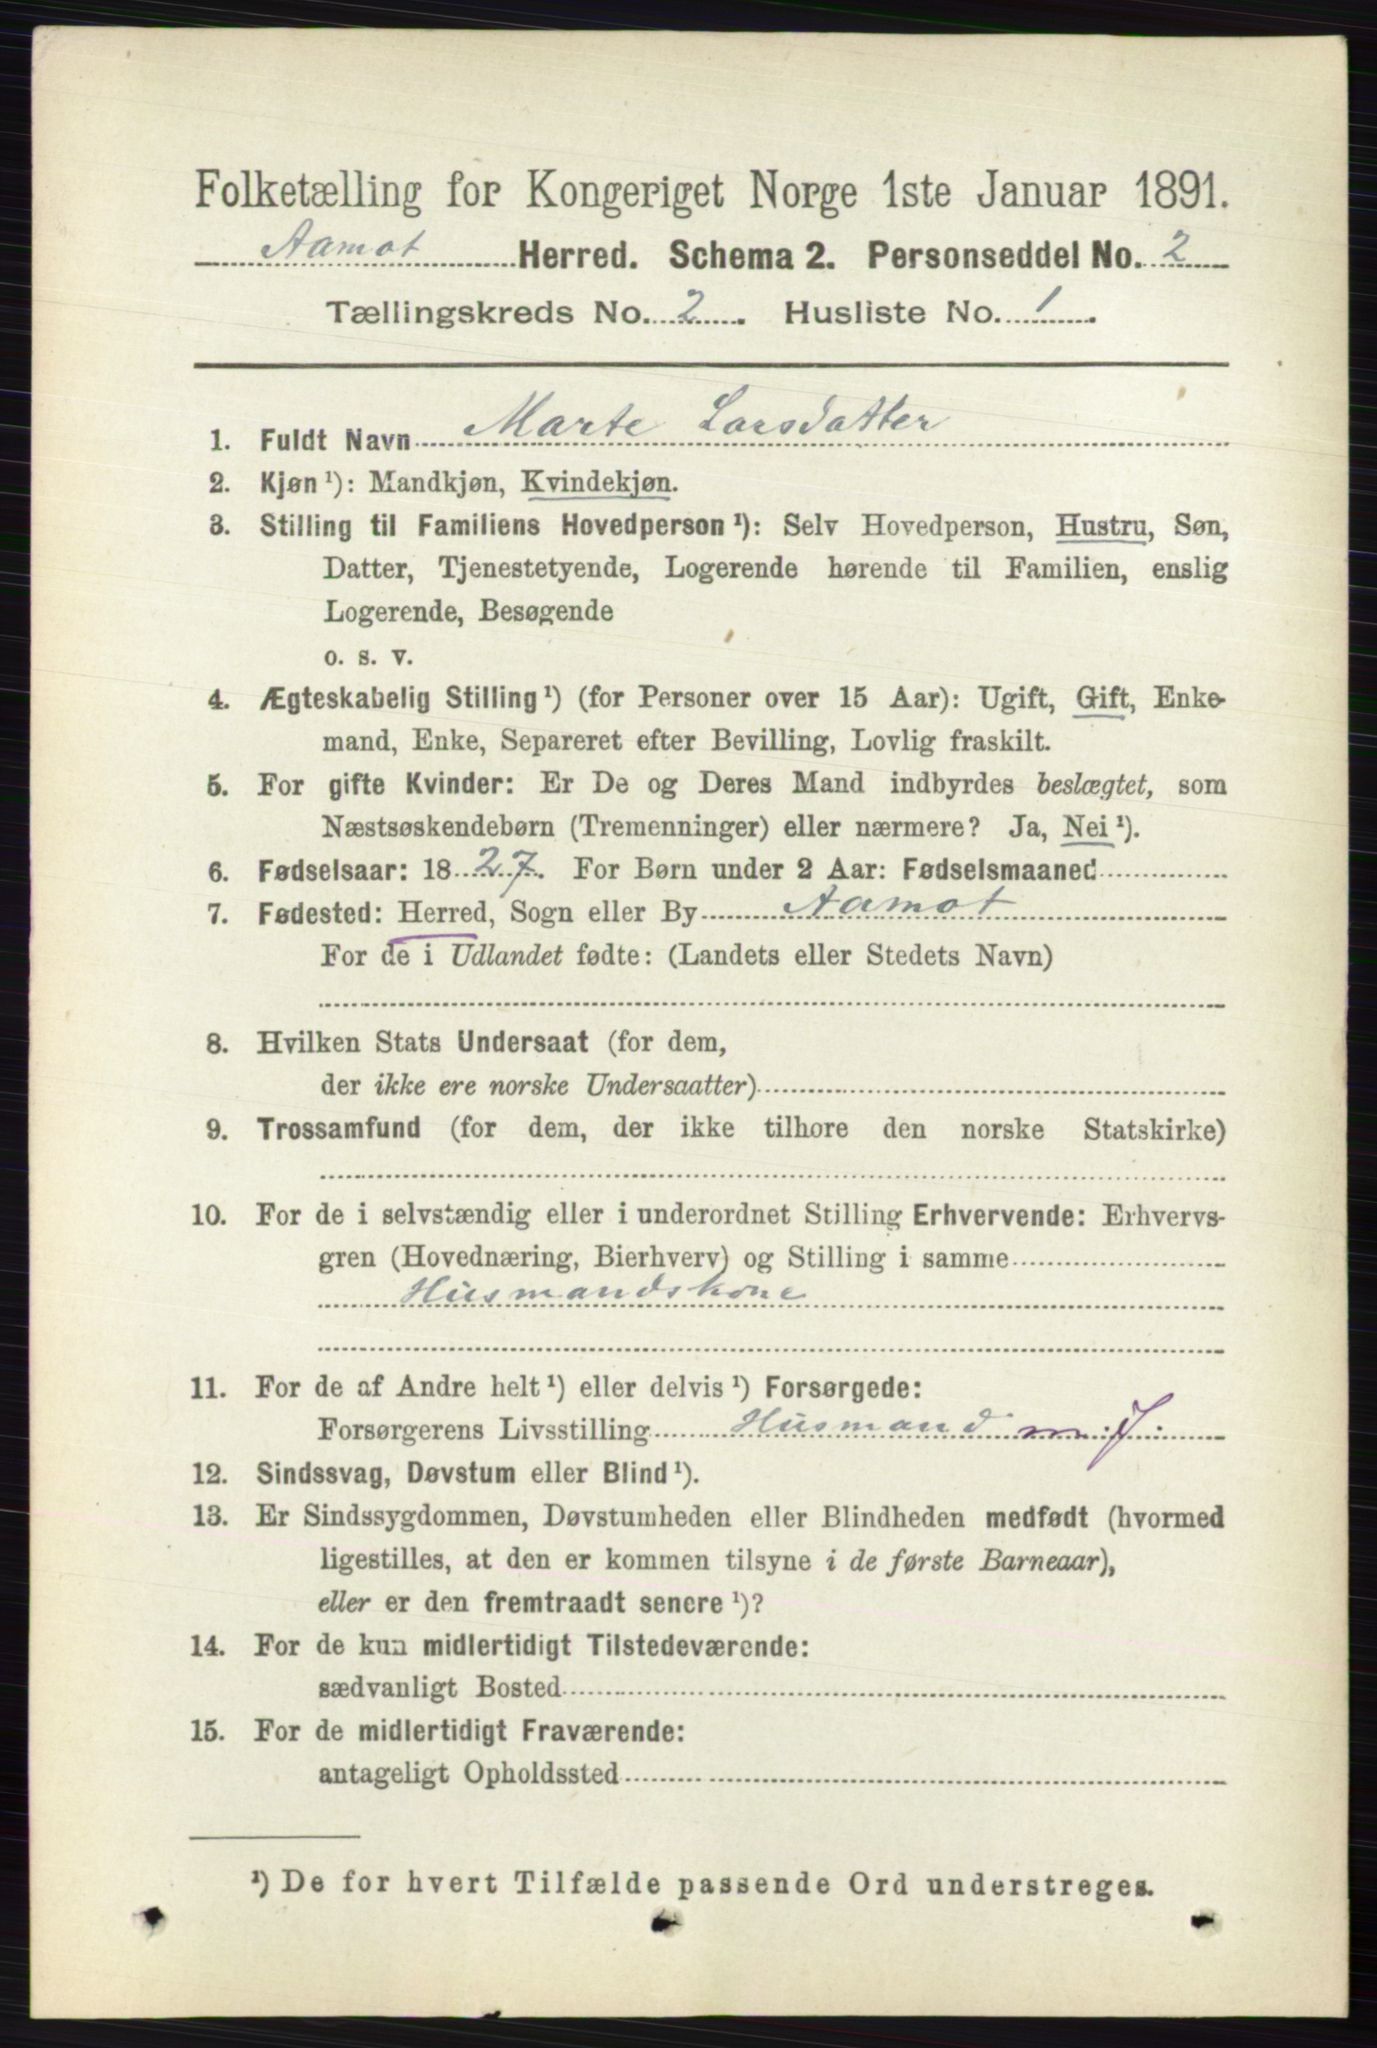 Folketælling for Kongeriget Norge 1ste Januar 1891.
Aamot Herred. Schema 2. Personseddel No. 2
Tællingskreds No. 2. Husliste No. 1.
1. Fuldt Navn Marte Larsdatter
2. Kjøn ¹): Mandkjøn, Kvindekjøn.
3. Stilling til Familiens Hovedperson ¹): Selv Hovedperson, Hustru, Søn,
Datter, Tjenestetyende, Logerende hørende til Familien, enslig
Logerende, Besøgende
o. s. v.
4. Ægteskabelig Stilling ¹) (for Personer over 15 Aar): Ugift, Gift, Enke-
mand, Enke, Separeret efter Bevilling, Lovlig fraskilt.
5. For gifte Kvinder: Er De og Deres Mand indbyrdes beslægtet, som
Næstsøskendebørn (Tremenninger) eller nærmere? Ja, Nei ¹).
6. Fødselsaar: 1827. For Børn under 2 Aar: Fødselsmaaned
7. Fødested: Herred, Sogn eller By Aamot
For de i Udlandet fødte: (Landets eller Stedets Navn)
8. Hvilken Stats Undersaat (for dem,
der ikke ere norske Undersaatter)
9. Trossamfund (for dem, der ikke tilhøre den norske Statskirke)
10. For de i selvstændig eller i underordnet Stilling Erhvervende: Erhvervs-
gren (Hovednæring, Bierhverv) og Stilling i samme
Husmandskone
11. For de af Andre helt ¹) eller delvis ¹) Forsørgede:
Forsørgerens Livsstilling Husmand m. J.
12. Sindssvag, Døvstum eller Blind ¹).
13. Er Sindssygdommen, Døvstumheden eller Blindheden medfødt (hvormed
ligestilles, at den er kommen tilsyne i de første Barneaar),
eller er den fremtraadt senere ¹)?
14. For de kun midlertidigt Tilstedeværende:
sædvanligt Bosted
15. For de midlertidigt Fraværende:
antageligt Opholdssted
¹) De for hvert Tilfælde passende Ord understreges.